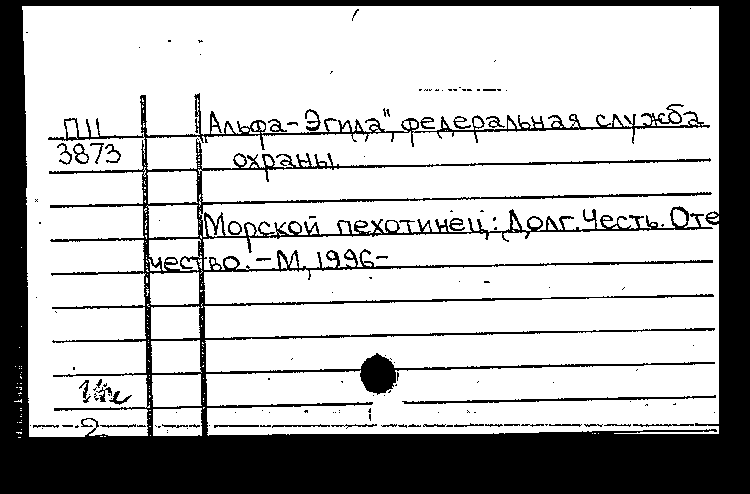 П11
3873
"Альфа-Эгида", федеральная служба
охраны.
Морской пехотинец: Долг. Честь. Оте
чество. – М., 1996–
2